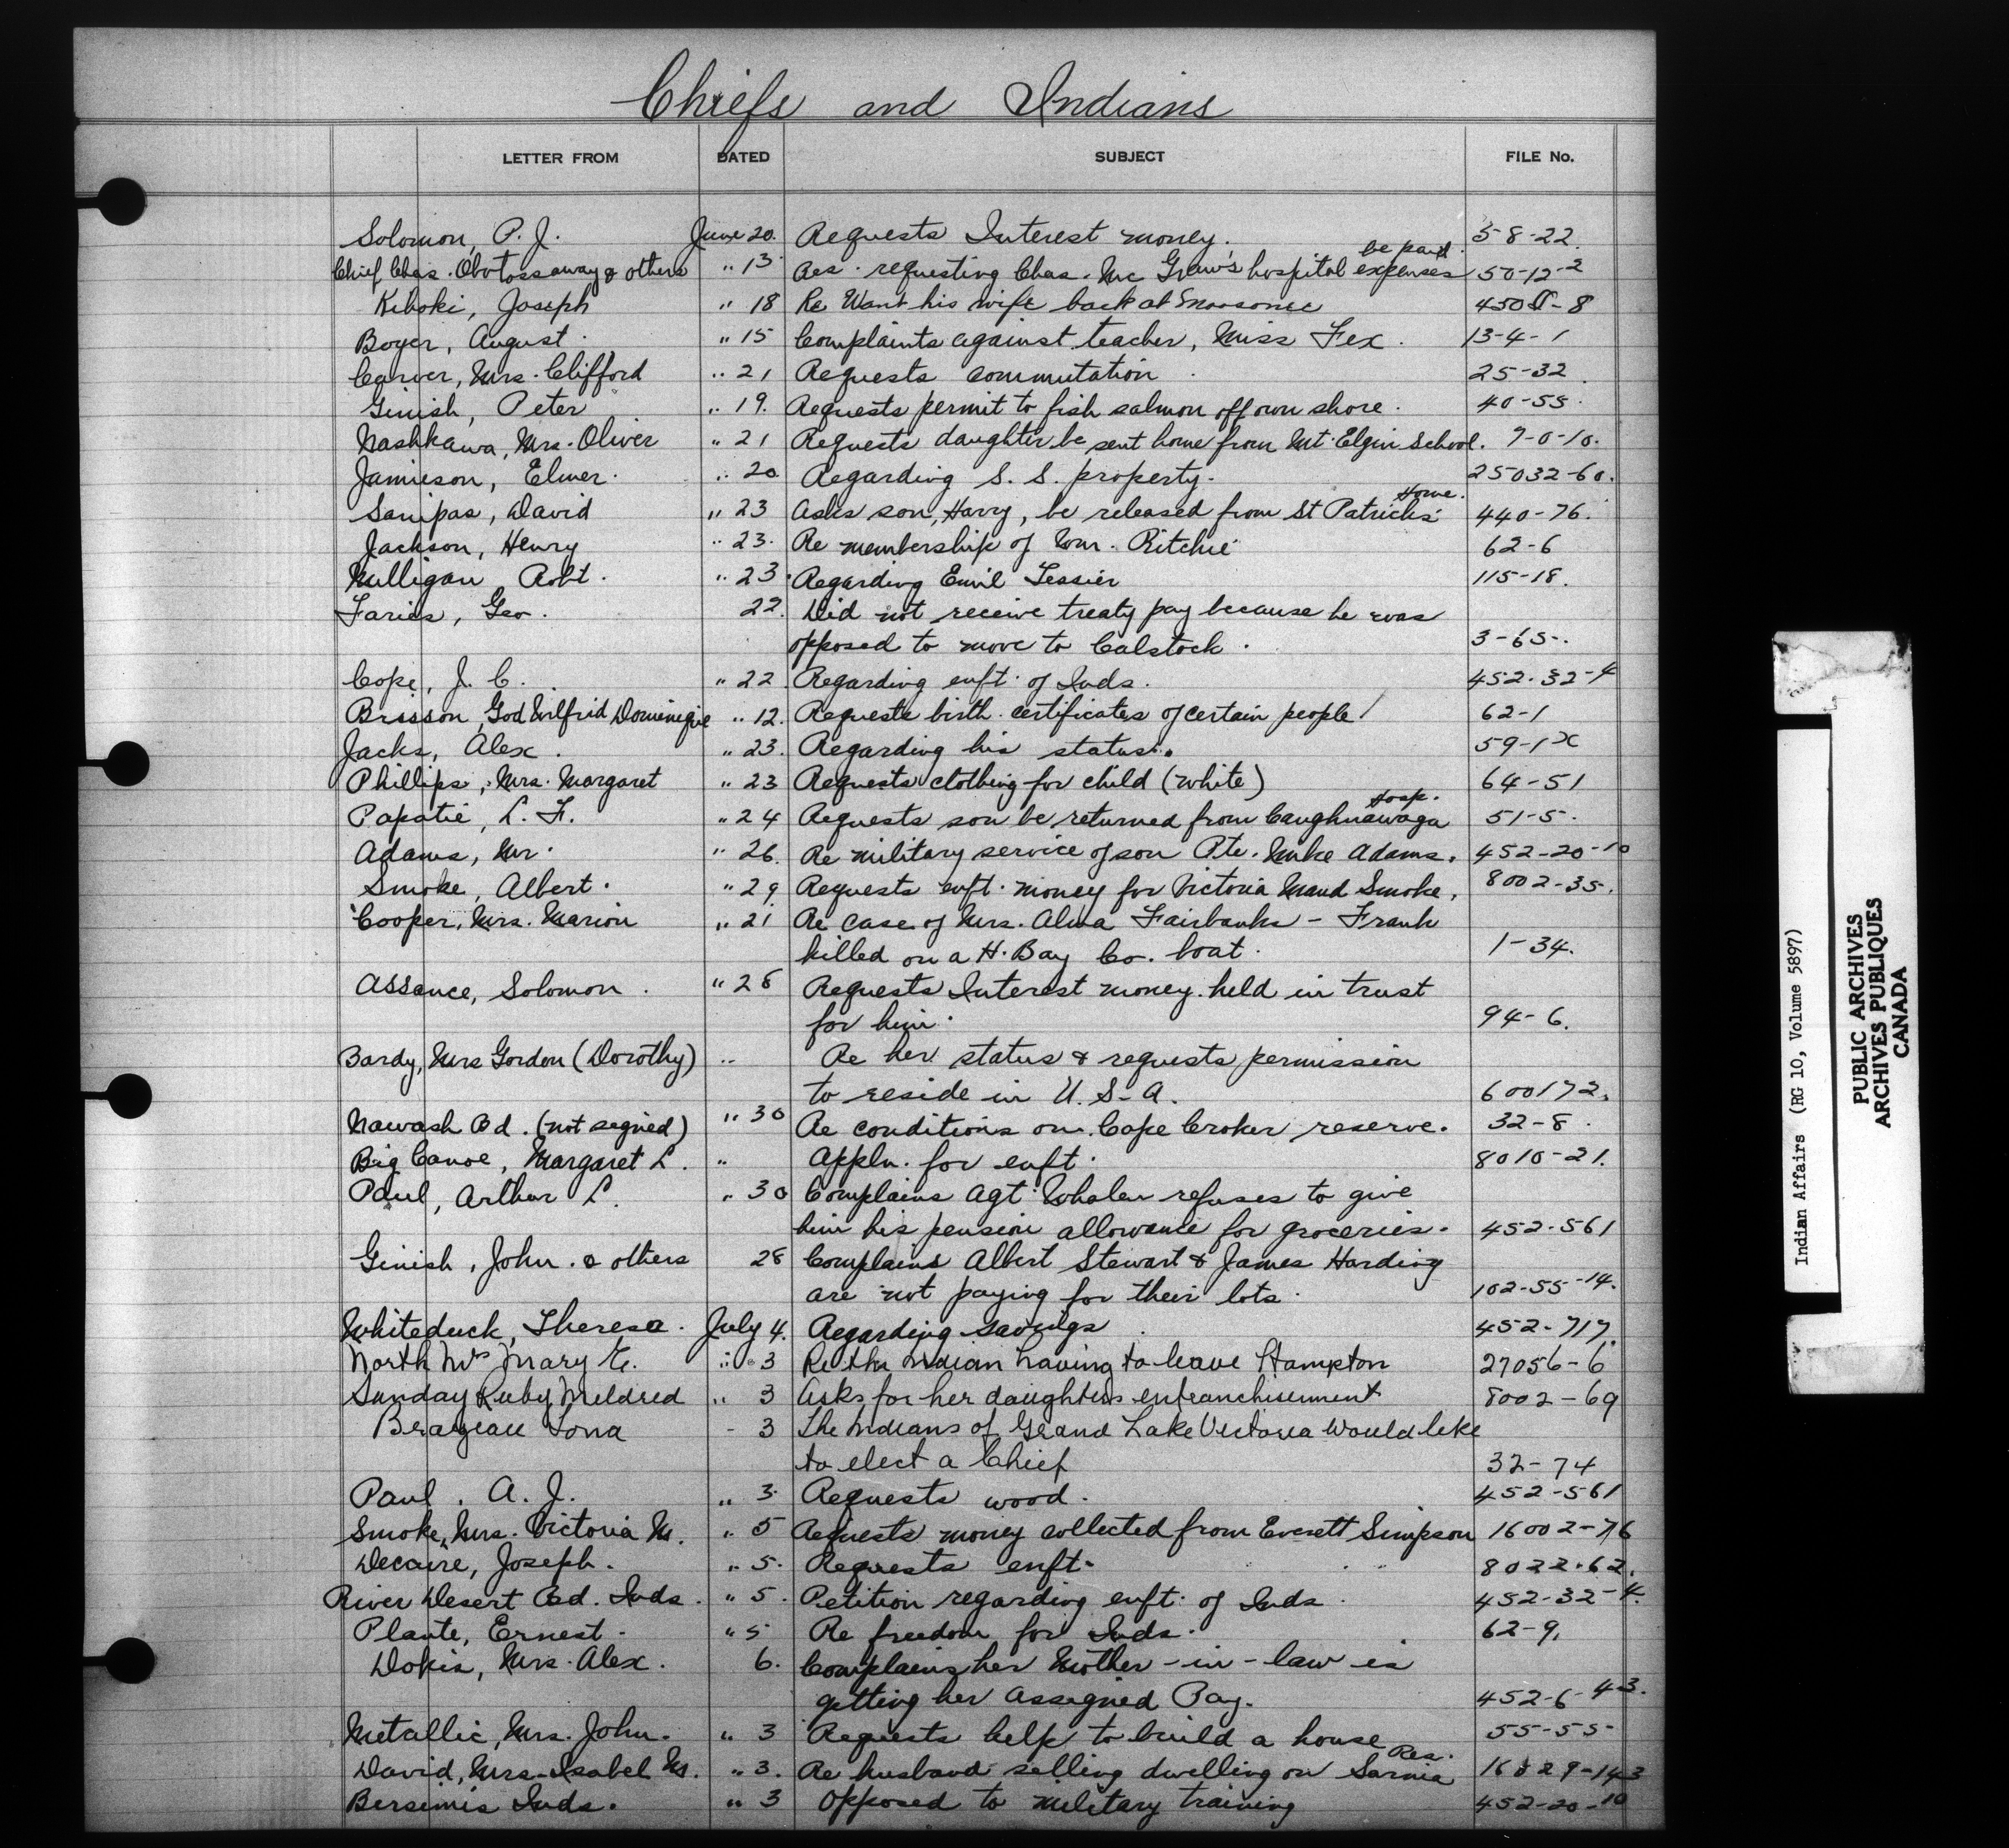 Chiefs and Indians
LETTER FROM DATED SUBJECT FILE No.
Solomon, P. J. June 20. Requests Interest money. 5-8-22.
Chief Chas. & others " 13 Res. requesting Chas. Mc Graw's hospital expenses be paid. 50-12-2
Kiboki, Joseph " 18 Re Want his wife back at Moosonee 450-8
Boyer, August. " 15 Complaints against teacher, Miss Fex. 13-4-1
Carver, Mrs. Clifford " 21 Requests commutation. 25-32.
Ginish, Peter " 19. Requests permit to fish salmon off own shore. 40-55.
Nashkawa, Mrs. Oliver " 21 Requests daughter be sent home from Mt. Elgin School. 7-0-10.
Jamieson, Elmer. " 20. Regarding S. S. property. 25032-60.
Sanipas, David " 23 Asks son, Harry, be released from St Patricks Home. 440-76.
Jackson, Henry " 23. Re membership of Wm. Ritchie 62-6
Milligan Robt. " 23. Regarding Emil Tessier 115-18.
Faries, Geo. 22. Did not receive treaty pay because he was
opposed to move to Calstock. 3-65-.
Cope, J. C. " 22. Regarding enft. of Inds. 452-32-4
Brisson, God Wilfrid Dominique " 12. Requests birth certificates of certain people! 62-1
Jacks, Alex. " 23. Regarding his status. 59-1x
Phillips, Mrs. Margaret " 23 Requests clothing for child (white) 64-51
Papatie, L. F. " 24 Requests son be returned from Caughnawaga Hosp. 51-5.
Adams, Mr. " 26. Re military service of son Pte. Mike Adams. 452-20-10
Smoke, Albert. " 29. Requests enft. money for Victoria Maud Smoke. 8002-35.
Cooper, Mrs. Marion " 21 Re case of Mrs. Alma Fairbanks - Frank
killed on a H. Bay Co. boat. 1-34.
Assance, Solomon. " 28 Requests Interest money held in trust
for him. 94-6.
Bardy, Mrs Gordon (Dorothy) " Re her status & requests permission
to reside in U. S. A. 600172.
Nawash Bd. (not signed) " 30 Re conditions on Cape Croker reserve. 32-8.
Big Canoe, Margaret L. " Appln. for enft. 8010-21.
Paul, Arthur L. " 30 Complains Agt. Whalen refuses to give
him his pension allowance for groceries. 452-561
Ginish, John. & others 28 Complains Albert Stewart & James Harding
are not paying for their lots. 102-55-14.
Whiteduck, Theresa. July 4. Regarding savings. 452-717.
North Mrs Mary E. " 3 Re the Indian having to leave Hampton 27056-6
Sunday Ruby Mildred " 3 Asks for her daughters enfranchisement 8002-69
Brazeau Tona - 3 The Indians of Grand Lake Victoria would like
to elect a Chief 32-74
Paul, A. J. " 3. Requests wood. 452-561
Smoke, Mrs. Victoria M. " 5 Requests money collected from Everett Simpson 16002-76
Decaire, Joseph. " 5. Requests enft. 8022-62.
River Desert Bd. Inds. " 5. Petition regarding enft. of Inds. 452-32-4.
Plante, Ernest. " 5 Re freedom for Inds. 62-9.
Dokis, Mrs. Alex. 6. Complains her Mother-in-law is
getting her Assigned Pay. 452-6-43.
Metallic, Mrs. John. " 3 Requests help to build a house 55-55-
David, Mrs. Isabel M. " 3. Re husband selling dwelling on Sarnia Res. 16029-143
Bersimis Inds. " 3 Opposed to military training 452-20-10
Indian Affairs (RG 10, Volume 5897)
PUBLIC ARCHIVES
ARCHIVES PUBLIQUES
CANADA